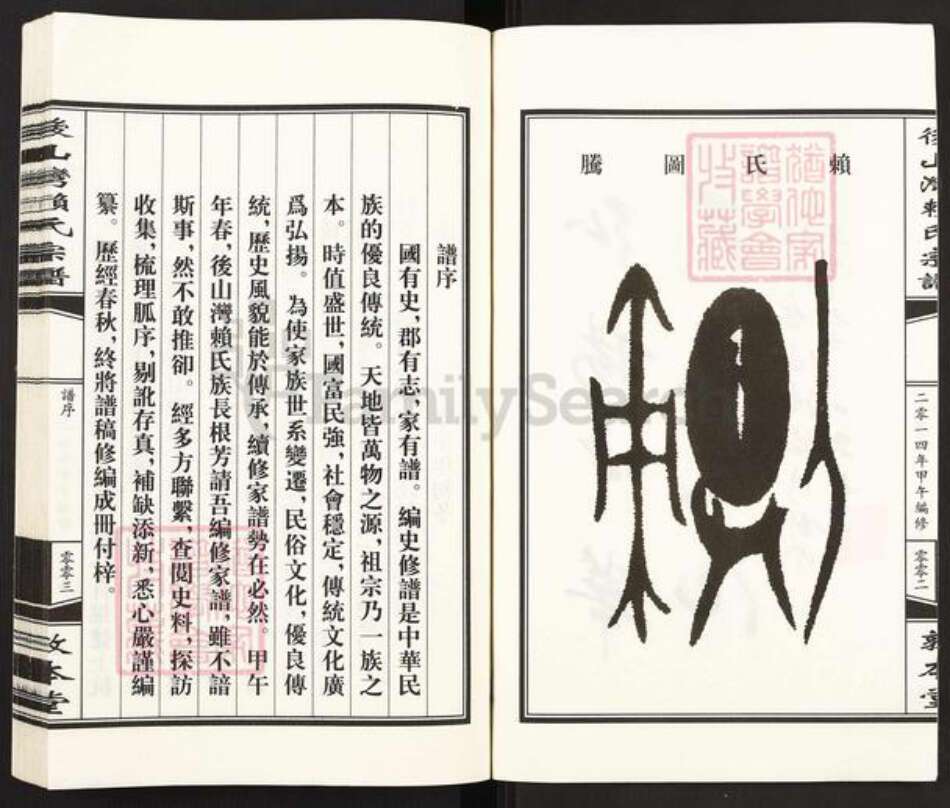 賴氏圖騰
後山灣賴氏宗譜
二零一四年甲午編修
零零二
敦本堂
譜序
國有史,郡有志,家有譜。編史修譜是中華民
族的優良傳統。天地皆萬物之源,祖宗乃一族之
本。時值盛世,國富民強,社會穩定,傳統文化廣
爲弘揚。為使家族世系變遷,民俗文化,優良傳
統,歷史風貌能於傳承,續修家譜勢在必然。甲午
年春,後山灣賴氏族長根芳請吾編修家譜,雖不諳
斯事,然不敢推卻。經多方聯繫,查閱史料,探訪
收集,梳理胍序,剔訛存真,補缺添新,悉心嚴謹編
纂。歷經春秋,終將譜稿修編成冊付梓。
後山灣賴氏宗譜
譜序
零零三
敦本堂
FamilySearch